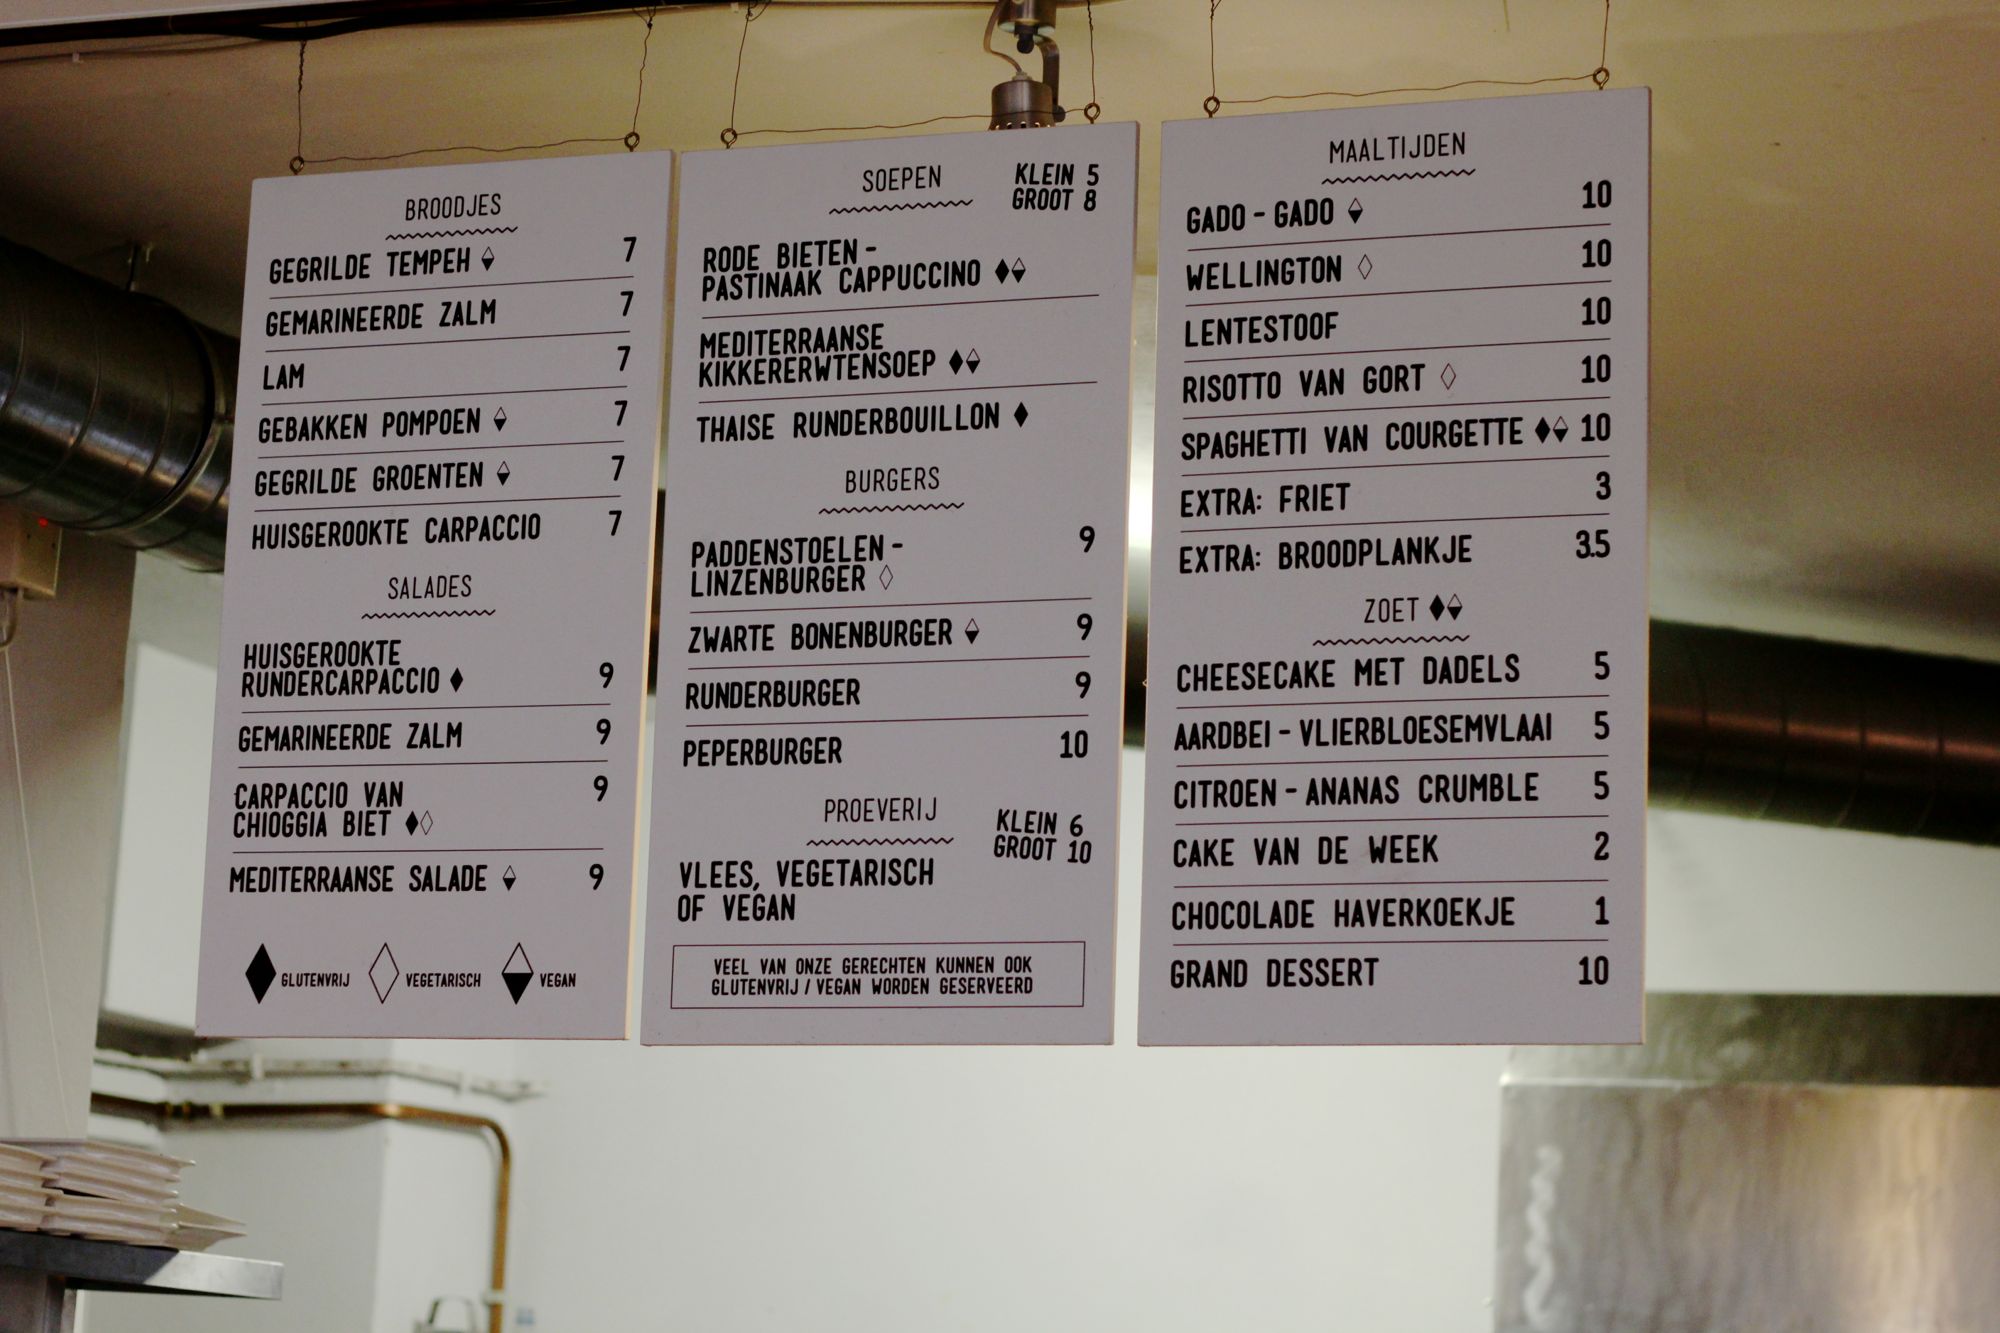 BROODJES
GEGRILDE TEMPEH 7
GEMARINEERDE ZALM 7
LAM 7
GEBAKKEN POMPOEN 7
GEGRILDE GROENTEN 7
HUISGEROOKTE CARPACCIO 7
SALADES
HUISGEROOKTE
RUNDERCARPACCIO 9
GEMARINEERDE ZALM 9
CARPACCIO VAN 9
CHIOGGIA BIET
MEDITERRAANSE SALADE 9
GLUTENVRIJ VEGETARISCH VEGAN
SOEPEN
KLEIN 5
GROOT 8
RODE BIETEN -
PASTINAAK CAPPUCCINO
MEDITERRAANSE
KIKKERERWTENSOEP
THAISE RUNDERBOUILLON
BURGERS
PADDENSTOELEN - 9
LINZENBURGER
ZWARTE BONENBURGER 9
RUNDERBURGER 9
PEPERBURGER 10
PROEVERIJ
KLEIN 6
GROOT 10
VLEES, VEGETARISCH
OF VEGAN
VEEL VAN ONZE GERECHTEN KUNNEN OOK
GLUTENVRIJ / VEGAN WORDEN GESERVEERD
MAALTIJDEN
GADO - GADO 10
WELLINGTON 10
LENTESTOOF 10
RISOTTO VAN GORT 10
SPAGHETTI VAN COURGETTE 10
EXTRA: FRIET 3
EXTRA: BROODPLANKJE 3.5
ZOET
CHEESECAKE MET DADELS 5
AARDBEI - VLIERBLOESEMVLAAI 5
CITROEN - ANANAS CRUMBLE 5
CAKE VAN DE WEEK 2
CHOCOLADE HAVERKOEKJE 1
GRAND DESSERT 10